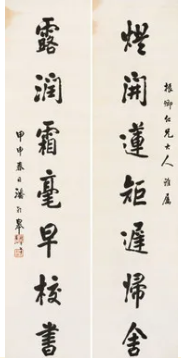 振卿仁兄大人雅屬
開蓮炬遲歸舍
露潤霜毫早校書
甲申春日潘齡皋